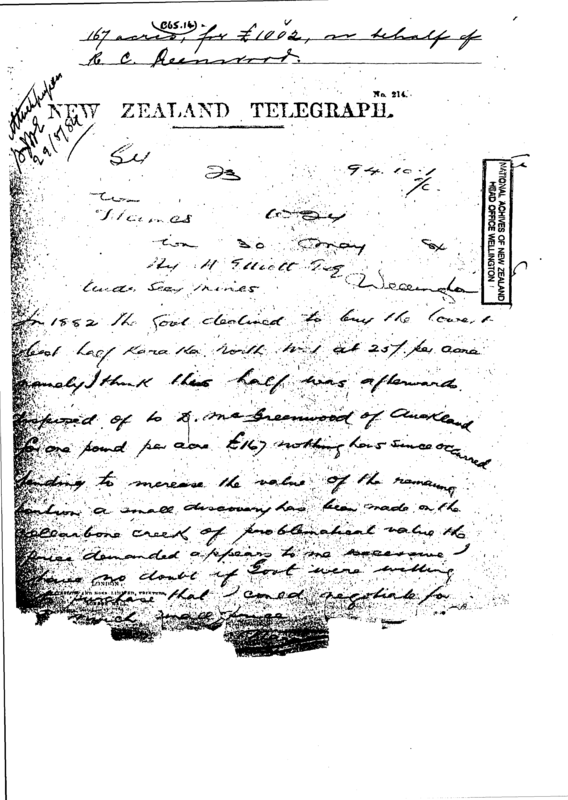 (£6.. 16)
167 acres, for £1002, on behalf of
R. C. Greenwood.
No. 214.
NEW ZEALAND TELEGRAPH.
29/5/84
94.10.1
Thames
30 May 84
Hy H Elliott Esq
Under Secy Mines Wellington
NATIONAL ACHIVES OF NEW ZEALAND
HEAD OFFICE WELLINGTON
In 1882 the Govt declined to buy the lower &
best half Karaka North No 1 at 25/ per acre
namely I think this half was afterwards
disposed of to D. Mc Greenwood of Auckland
for one pound per acre £167 nothing has since occurred
tending to increase the value of the remaining
portion a small discovery has been made on the
Collarbone creek of problematical value the
price demanded appears to me excessive I
have no doubt if Govt were willing
LONDON:
to purchase that I could negotiate for
a much smaller